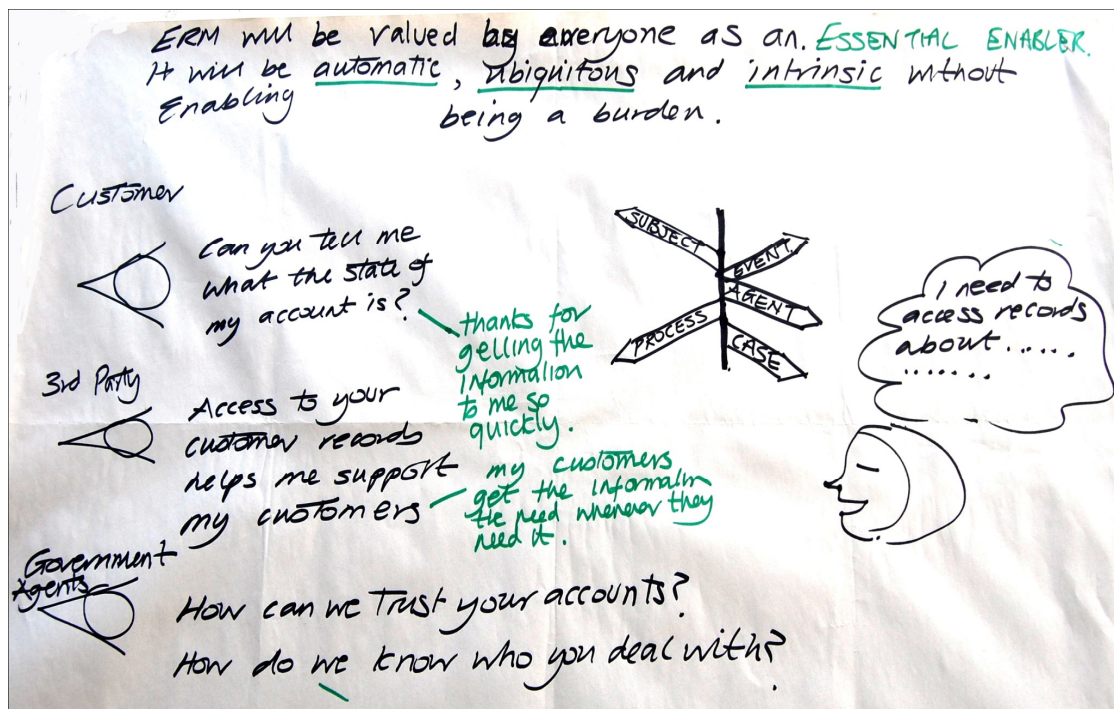 ERM will be valued by everyone as an. ESSENTIAL ENABLER.
It will be automatic, ubiquitous and intrinsic without
Enabling being a burden.
Customer
Can you tell me
what the state of
my account is?
thanks for
getting the
information
to me so
quickly.
3rd Party
Access to your
customer records
helps me support
my customers
my customers
get the information
the need whenever they
need it.
Government
Agents
How can we Trust your accounts?
How do we know who you deal with?
SUBJECT
EVENT
AGENT
PROCESS
CASE
I need to
access records
about......
.......